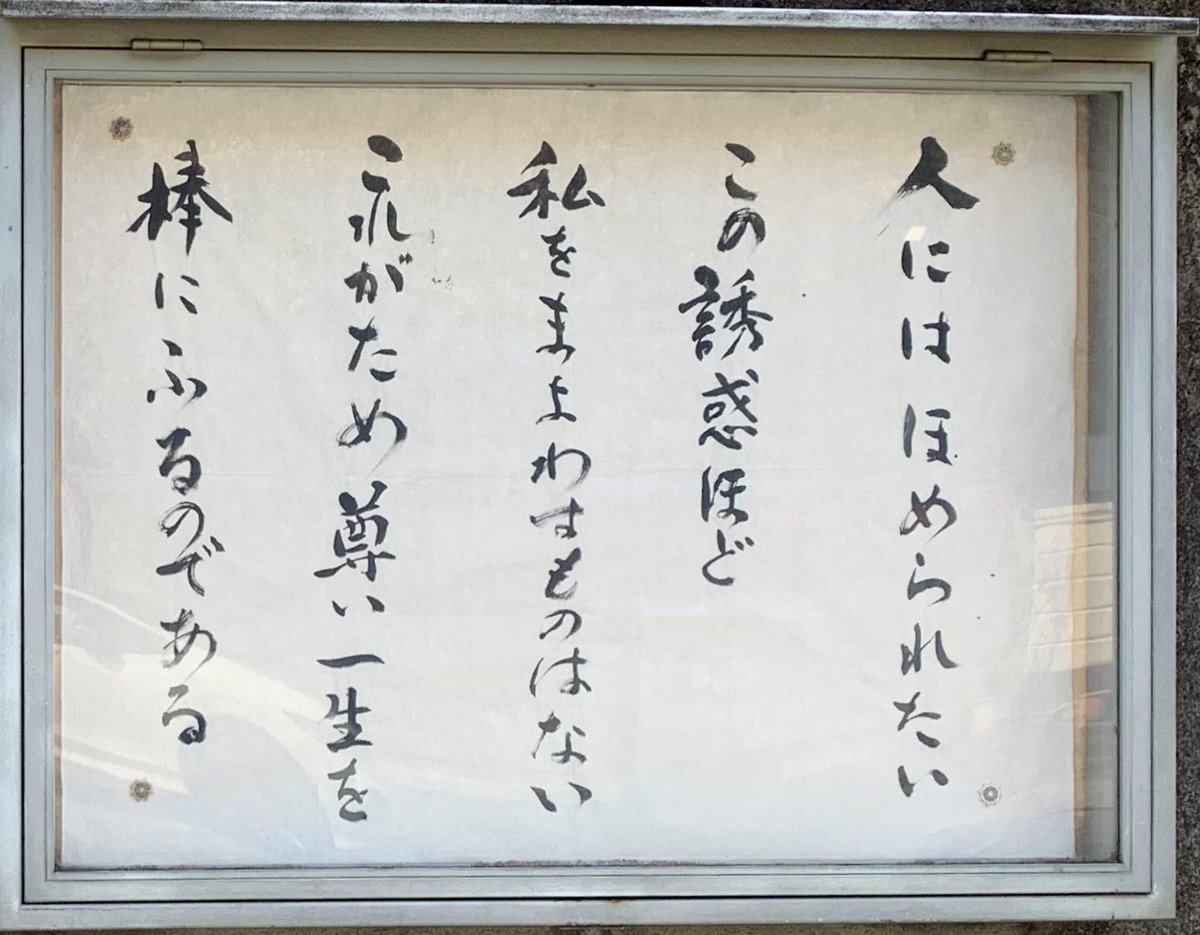 人にはほめられたい
この誘惑ほど
私をまよわすものはない
これがため尊い一生を
棒にふるのである